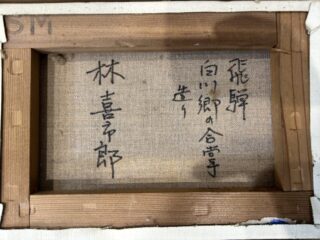 飛騨
白川郷の合掌
造り
林喜市郎
SM